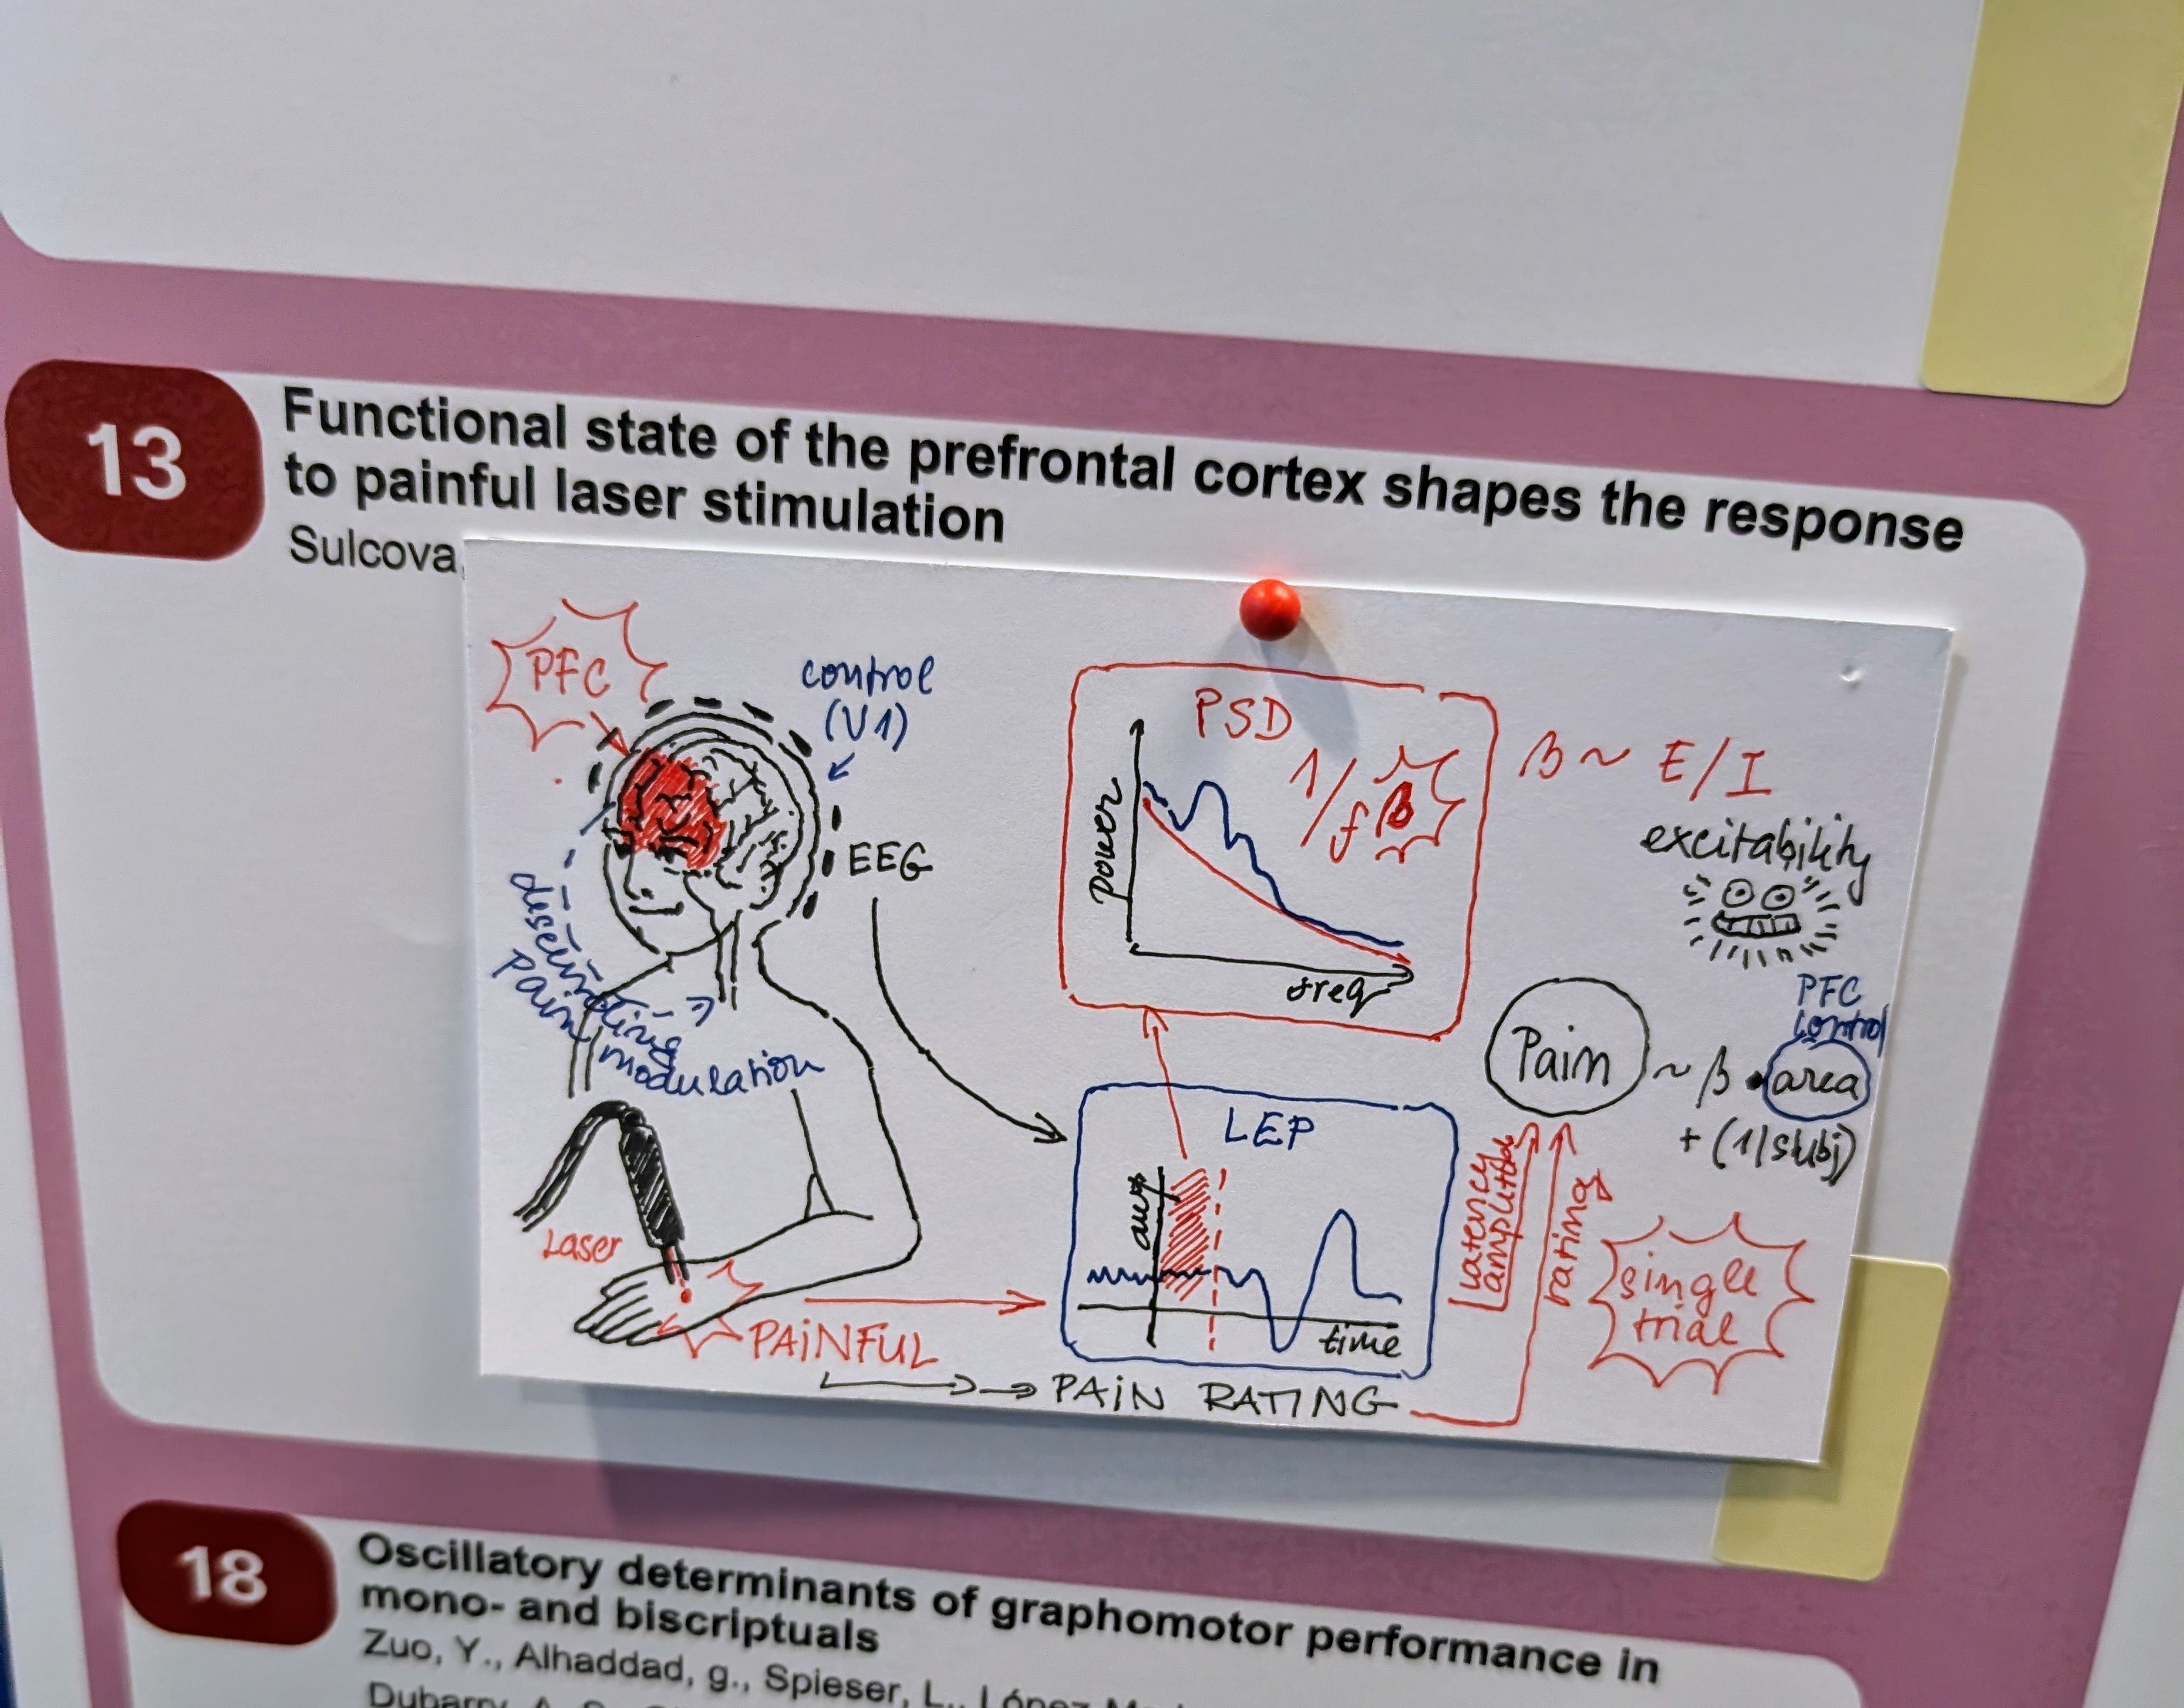 13
Functional state of the prefrontal cortex shapes the response
to painful laser stimulation
Sulcova,
PFC
control
(V1)
EEG
descending
pain modulation
Laser
PAINFUL
PAIN RATING
PSD
power
freq
1/f β
β ~ E/I
excitability
LEP
amp
time
latency
amplitude
rating
single
trial
PFC
control
Pain ~ β • area
+ (1/subj)
18
Oscillatory determinants of graphomotor performance in
mono- and biscriptuals
Zuo, Y., Alhaddad, g., Spieser, L., López
Dubarry, A.